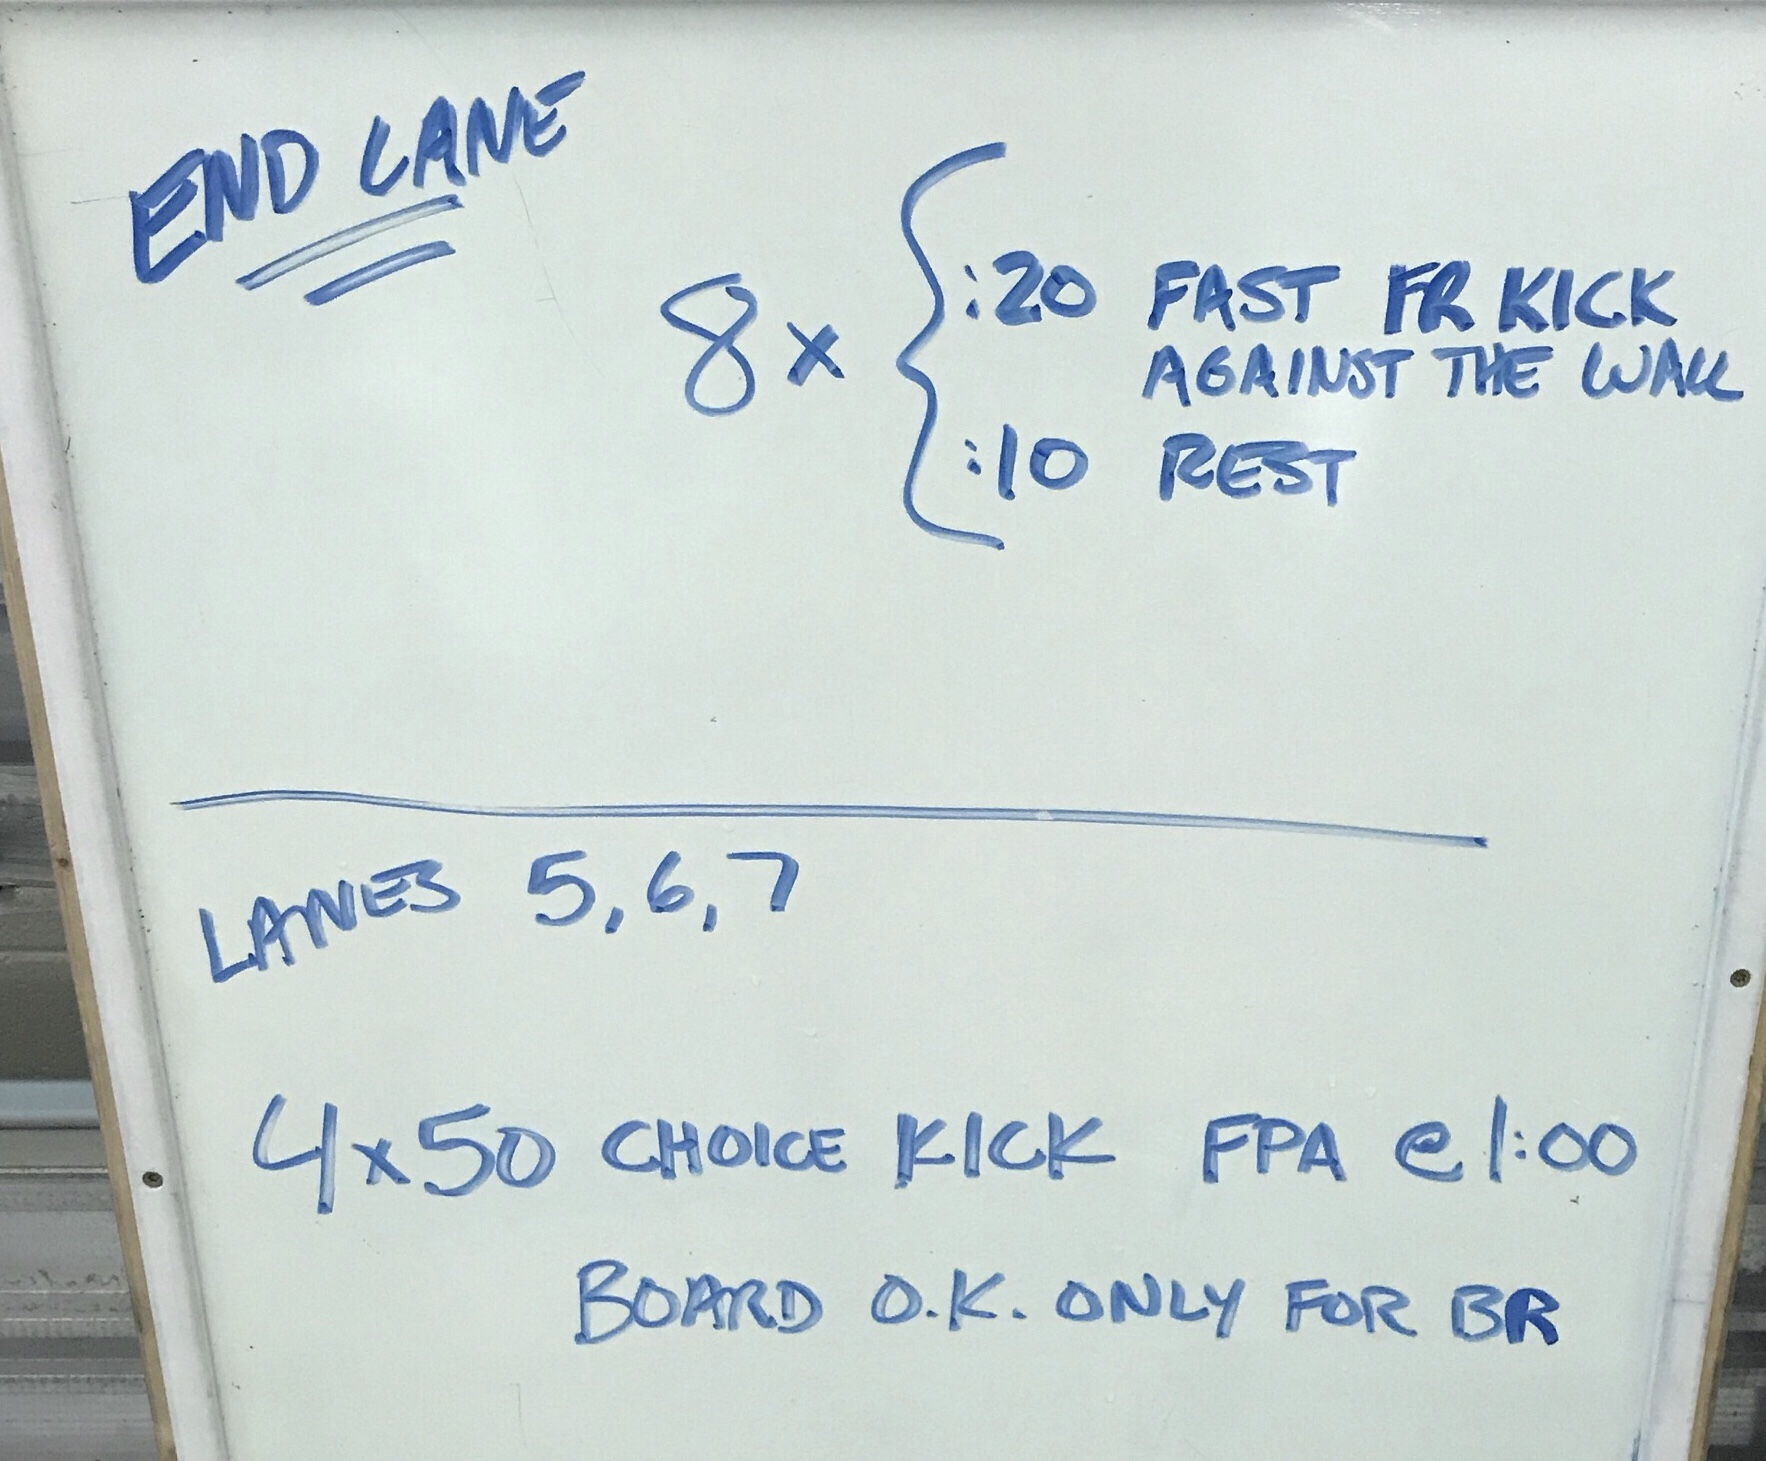 END LANE
8x
:20 FAST FR KICK
AGAINST THE WALL
:10 REST
LANES 5, 6, 7
4x50 CHOICE KICK FPA @ 1:00
BOARD O.K. ONLY FOR BR